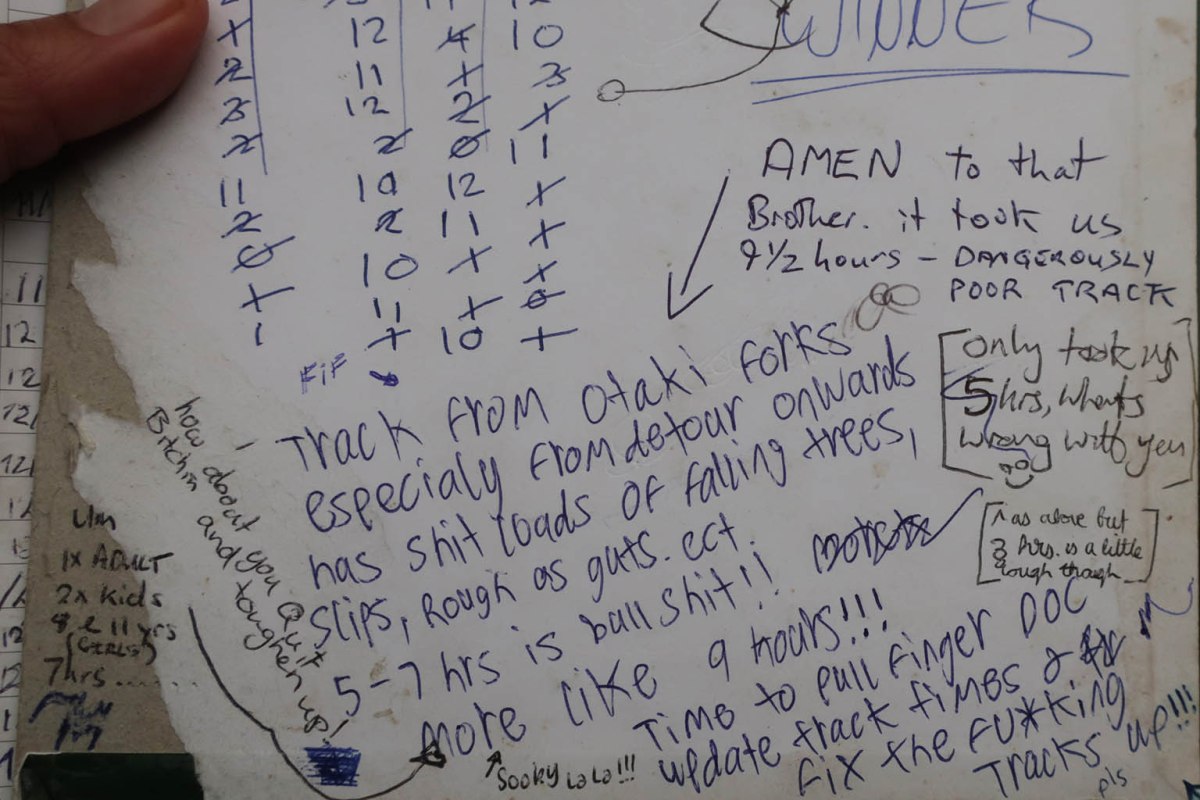 WINNER
12 4 10
2 11 + 3
3 12 2 +
2 2 0 11
11 10 12 +
2 2 11 +
0 10 + +
+ 11 + 0
1 + 10 +
AMEN to that
Brother. it took us
9 1/2 hours - DANGEROUSLY
POOR TRACK
FiF
Track from Otaki forks
especialy from detour onwards
has shit loads of falling trees,
slips, Rough as guts. ect.
5-7 hrs is bull shit!!
more like 9 hours!!!
Time to pull finger DOC
update track times &
fix the FU*king
Tracks up!!!
pls
[only took us
5 hrs, whats
wrong with you]
[^ as above but
3 hrs. is a little
tough though]
how about you quit
Bitchin and toughen up!
1x ADULT
2x Kids
8 & 11 yrs
(GIRLS)
7hrs......
Sooky La La!!!
11
12
12
12